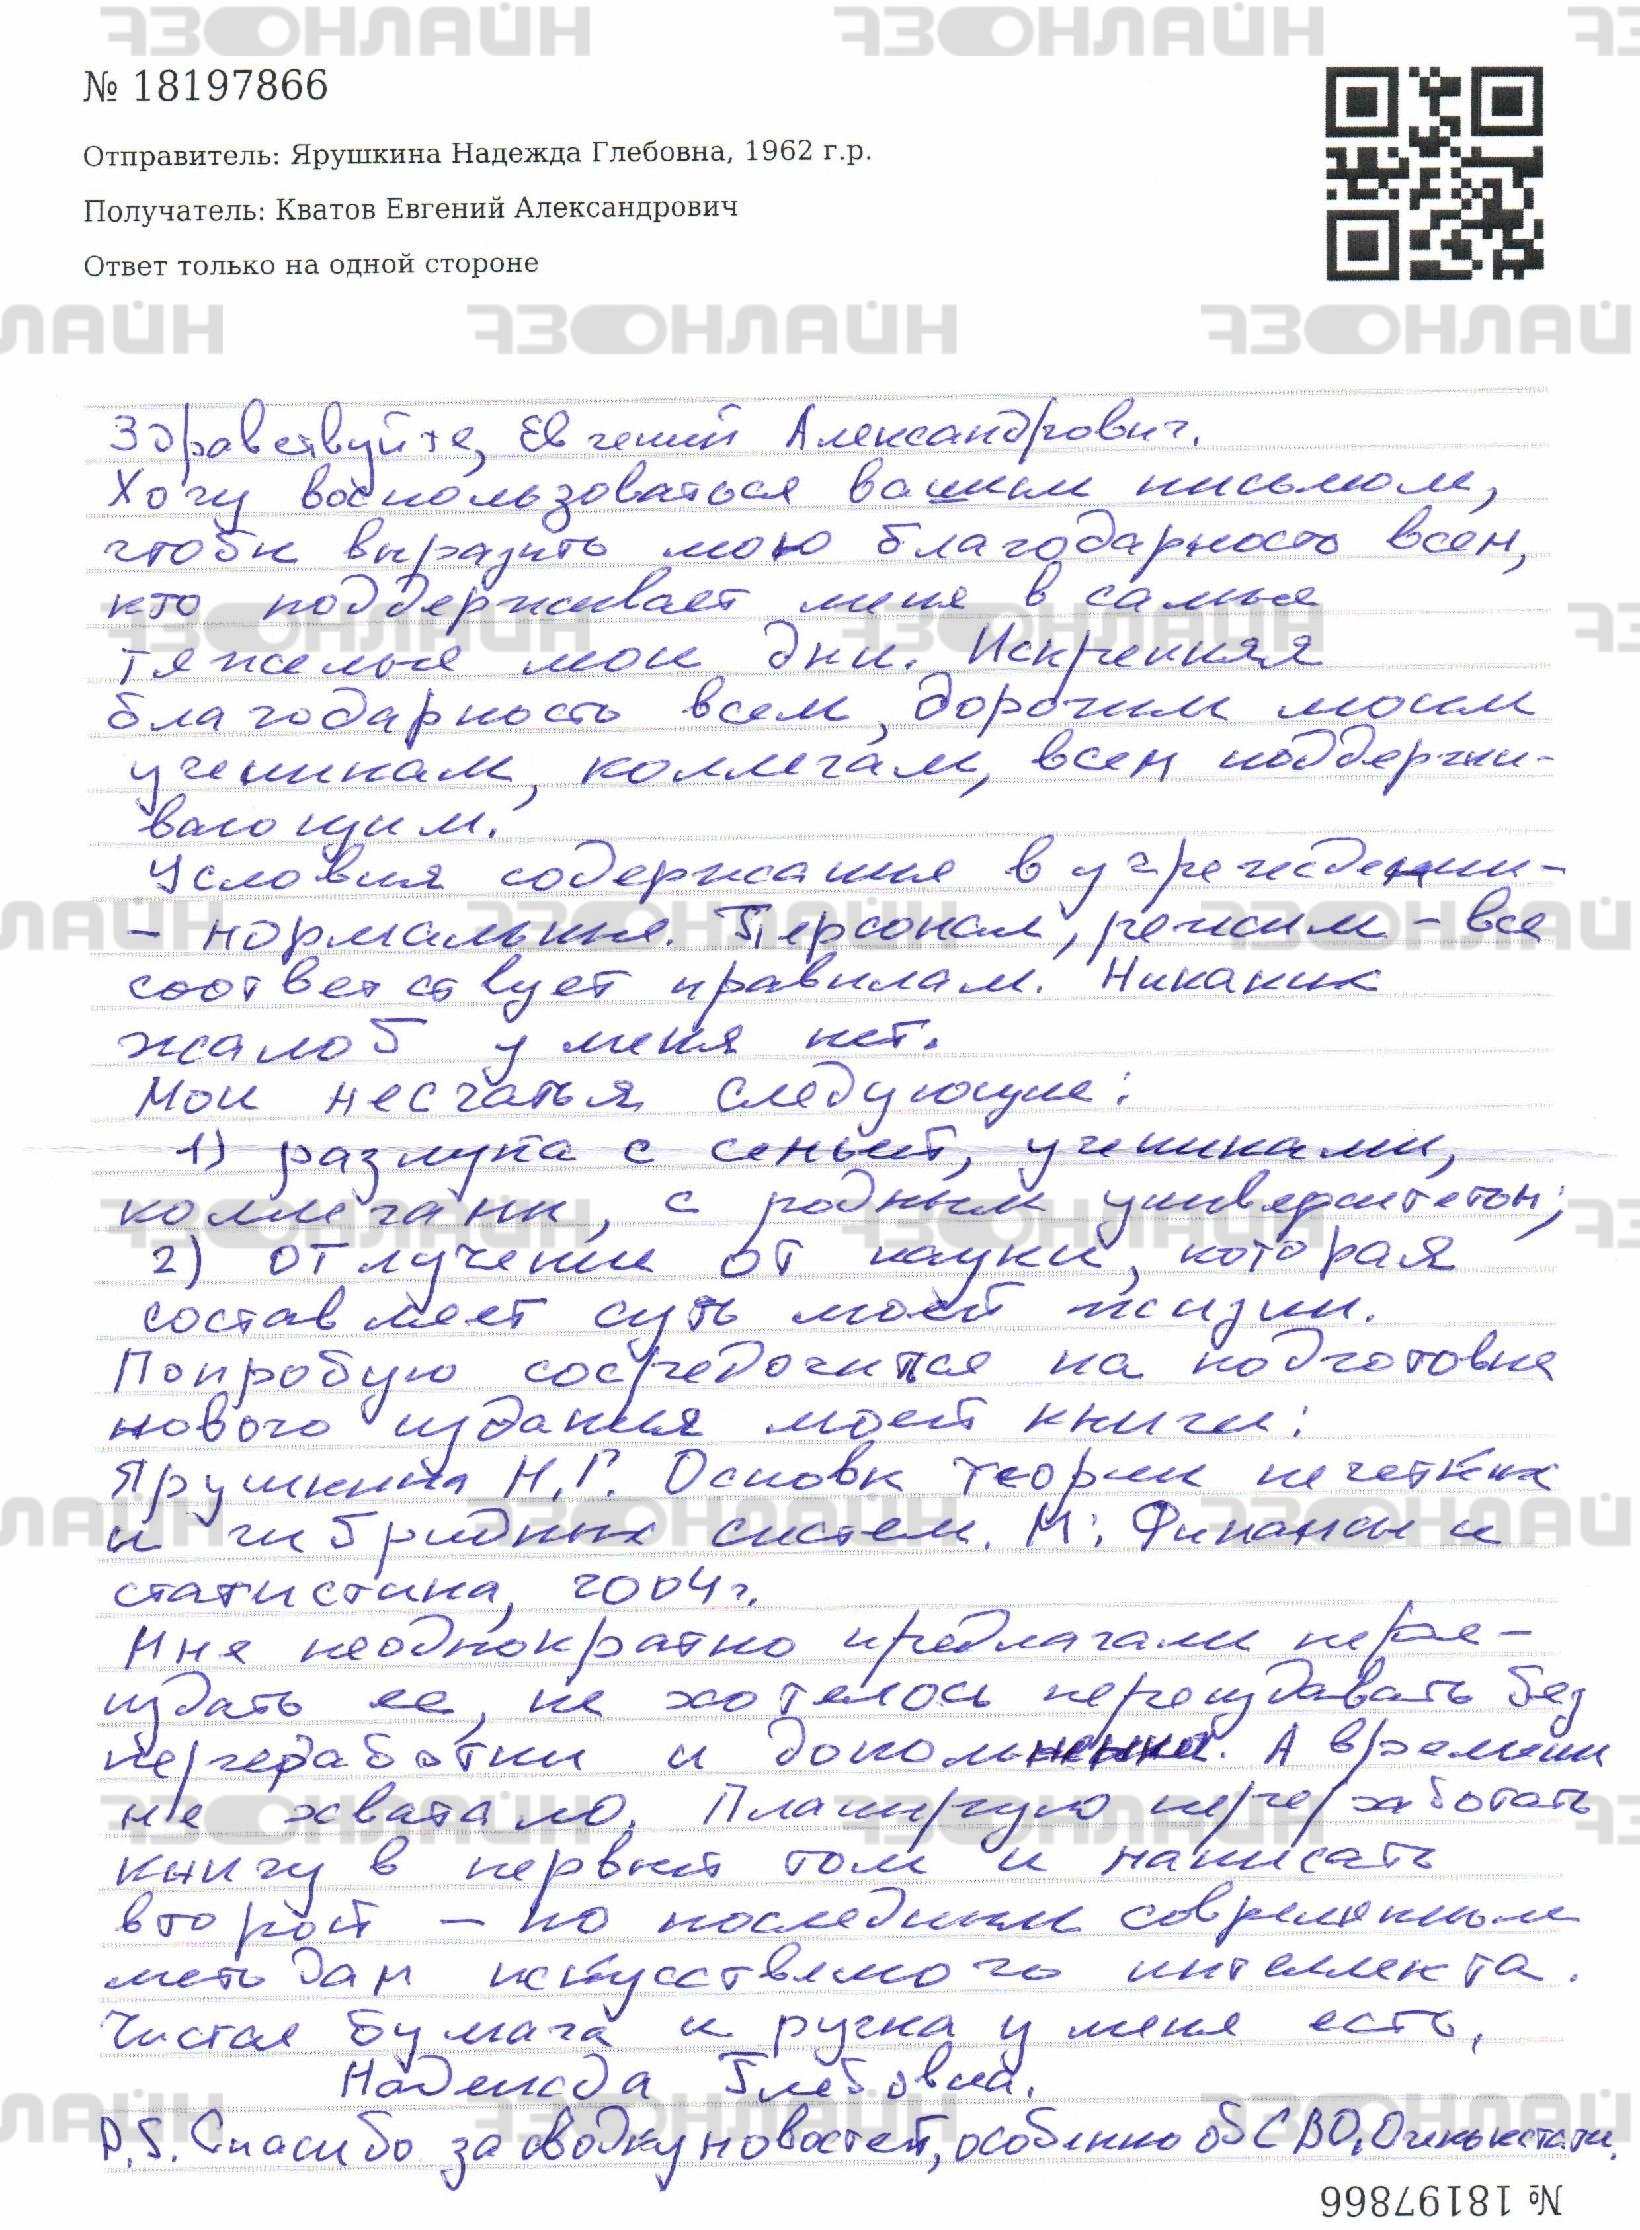 ФЗОНЛАЙН ФЗОНЛАЙН
№ 18197866
Отправитель: Ярушкина Надежда Глебовна, 1962 г.р.
Получатель: Кватов Евгений Александрович
Ответ только на одной стороне
Здравствуйте, Евгений Александрович.
Хочу воспользоваться вашим письмом,
чтобы выразить мою благодарность всем,
кто поддерживает меня в самые
тяжелые мои дни. Искренняя
благодарность всем, дорогим моим
ученикам, коллегам, всем поддержи-
вающим.
Условия содержания в учреждении-
- нормальные. Персонал, режим - все
соответствует правилам. Никаких
жалоб у меня нет.
Мои несчатья следующие:
1) разлука с семьей, учениками,
коллегами, с родным университетом;
2) отлучение от науки, которая
составляет суть моей жизни.
Попробую сосредочится на подготовке
нового издания моей книги:
Ярушкина Н.Г. Основы теории нечетких
и гибридных систем. М: Финансы и
статистика, 2004г.
Мне неоднократно предлагали пере-
издать ее, не хотелось переиздавать без
переработки и дополнения. А времени
не хватало. Планирую переработать
книгу в первый том и написать
второй - по последним современным
методам искусственого интеллекта.
Чистая бумага и ручка у меня есть.
Надежда Глебовна.
P.S. Спасибо за сводку новостей, особенно об СВО. Очень кстати.
№ 18197866